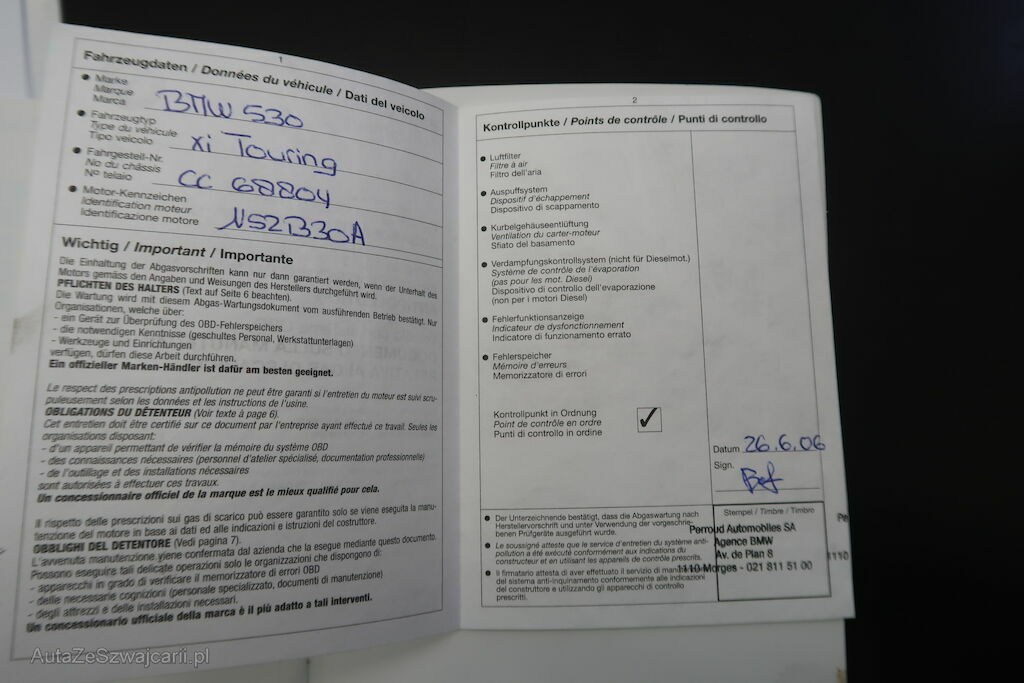 1
Fahrzeugdaten / Données du véhicule / Dati del veicolo
● Marke
Marque
Marca
BMW 530
● Fahrzeugtyp
Type du véhicule
Tipo veicolo
xi Touring
● Fahrgestell-Nr.
No du châssis
Nº telaio
CC 68804
● Motor-Kennzeichen
Identification moteur
Identificazione motore
N52B30A
Wichtig / Important / Importante
Die Einhaltung der Abgasvorschriften kann nur dann garantiert werden, wenn der Unterhalt des
Motors gemäss den Angaben und Weisungen des Herstellers durchgeführt wird.
PFLICHTEN DES HALTERS (Text auf Seite 6 beachten).
Die Wartung wird mit diesem Abgas-Wartungsdokument vom ausführenden Betrieb bestätigt. Nur
Organisationen, welche über:
- ein Gerät zur Überprüfung des OBD-Fehlerspeichers
- die notwendigen Kenntnisse (geschultes Personal, Werkstattunterlagen)
- Werkzeuge und Einrichtungen
verfügen, dürfen diese Arbeit durchführen.
Ein offizieller Marken-Händler ist dafür am besten geeignet.
Le respect des prescriptions antipollution ne peut être garanti si l'entretien du moteur est suivi scru-
puleusement selon les données et les instructions de l'usine.
OBLIGATIONS DU DÉTENTEUR (Voir texte à page 6).
Cet entretien doit être certifié sur ce document par l'entreprise ayant effectué ce travail. Seules les
organisations disposant:
- d'un appareil permettant de vérifier la mémoire du système OBD
- des connaissances nécessaires (personnel d'atelier spécialisé, documentation professionnelle)
- de l'outillage et des installations nécessaires
sont autorisées à effectuer ces travaux.
Un concessionnaire officiel de la marque est le mieux qualifié pour cela.
Il rispetto delle prescrizioni sui gas di scarico può essere garantito solo se viene eseguita la manu-
tenzione del motore in base ai dati ed alle indicazioni e istruzioni del costruttore.
OBBLIGHI DEL DETENTORE (Vedi pagina 7).
L'avvenuta manutenzione viene confermata dal azienda che la esegue mediante questo documento.
Possono eseguire tali delicate operazioni solo le organizzazioni che dispongono di:
- apparecchi in grado di verificare il memorizzatore di errori OBD
- delle necessarie cognizioni (personale specializzato, documenti di manutenzione)
- degli attrezzi e delle installazioni necessari.
Un concessionario ufficiale della marca è il più adatto a tali interventi.
2
Kontrollpunkte / Points de contrôle / Punti di controllo
● Luftfilter
Filtre à air
Filtro dell'aria
● Auspuffsystem
Dispositif d'échappement
Dispositivo di scappamento
● Kurbelgehäuseentlüftung
Ventilation du carter-moteur
Sfiato del basamento
● Verdampfungskontrollsystem (nicht für Dieselmot.)
Système de contrôle de l'évaporation
(pas pour les mot. Diesel)
Dispositivo di controllo dell'evaporazione
(non per i motori Diesel)
● Fehlerfunktionsanzige
Indicateur de dysfonctionement
Indicatore di funzionamento errato
● Fehlerspeicher
Mémoire d'erreurs
Memorizzatore di errori
Kontrollpunkt in Ordnung
Point de contrôle en ordre
Punti di controllo in ordine
✓
Datum 26.6.06
Sign.
● Der Unterzeichnende bestätigt, dass die Abgaswartung nach
Herstellervorschrift und unter Verwendung der vorgeschrie-
benen Prüfgeräte ausgeführt wurde.
● Le soussigné atteste que le service d'entretien du système anti-
pollution a été exécuté conformément aux indications du
constructeur et en utilisant les appareils de contrôle prescrits.
● Il firmatario attesta di aver effettuato il servizio di
del sistema anti-inquinamento conformemente alle indicazioni
del construttore e utilizando gli apparecchi di controllo
prescritti.
Stempel / Timbre / Timbro
Perroud Automobiles SA
Agence BMW
Av. de Plan 8
1110 Morges - 021 811 51 00
Pe
1110
AutaZeSzwajcarii.pl